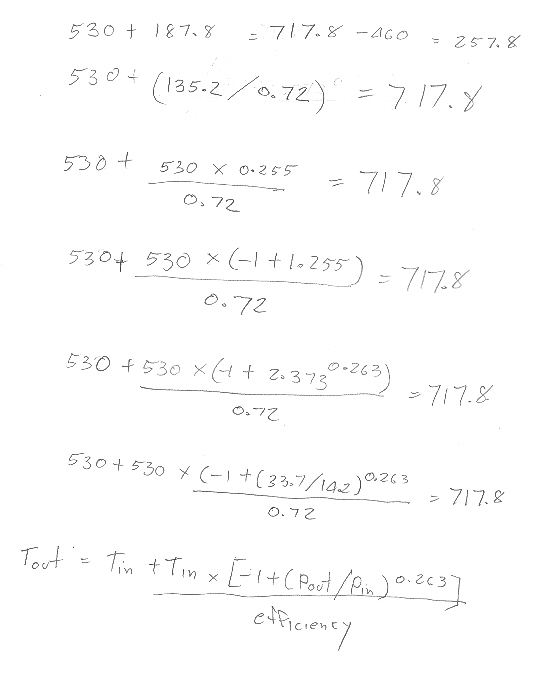 530 + 187.8 = 717.8 - 460 = 257.8
530 + (135.2/0.72) = 717.8
530 + 530 x 0.255 = 717.8
0.72
530 + 530 x (-1 + 1.255) = 717.8
0.72
530 + 530 x (-1 + 2.373^0.263) = 717.8
0.72
530 + 530 x (-1 + (33.7/14.2)^0.263 = 717.8
0.72
Tout = Tin + Tin x [-1 + (Pout/Pin)^0.263]
efficiency